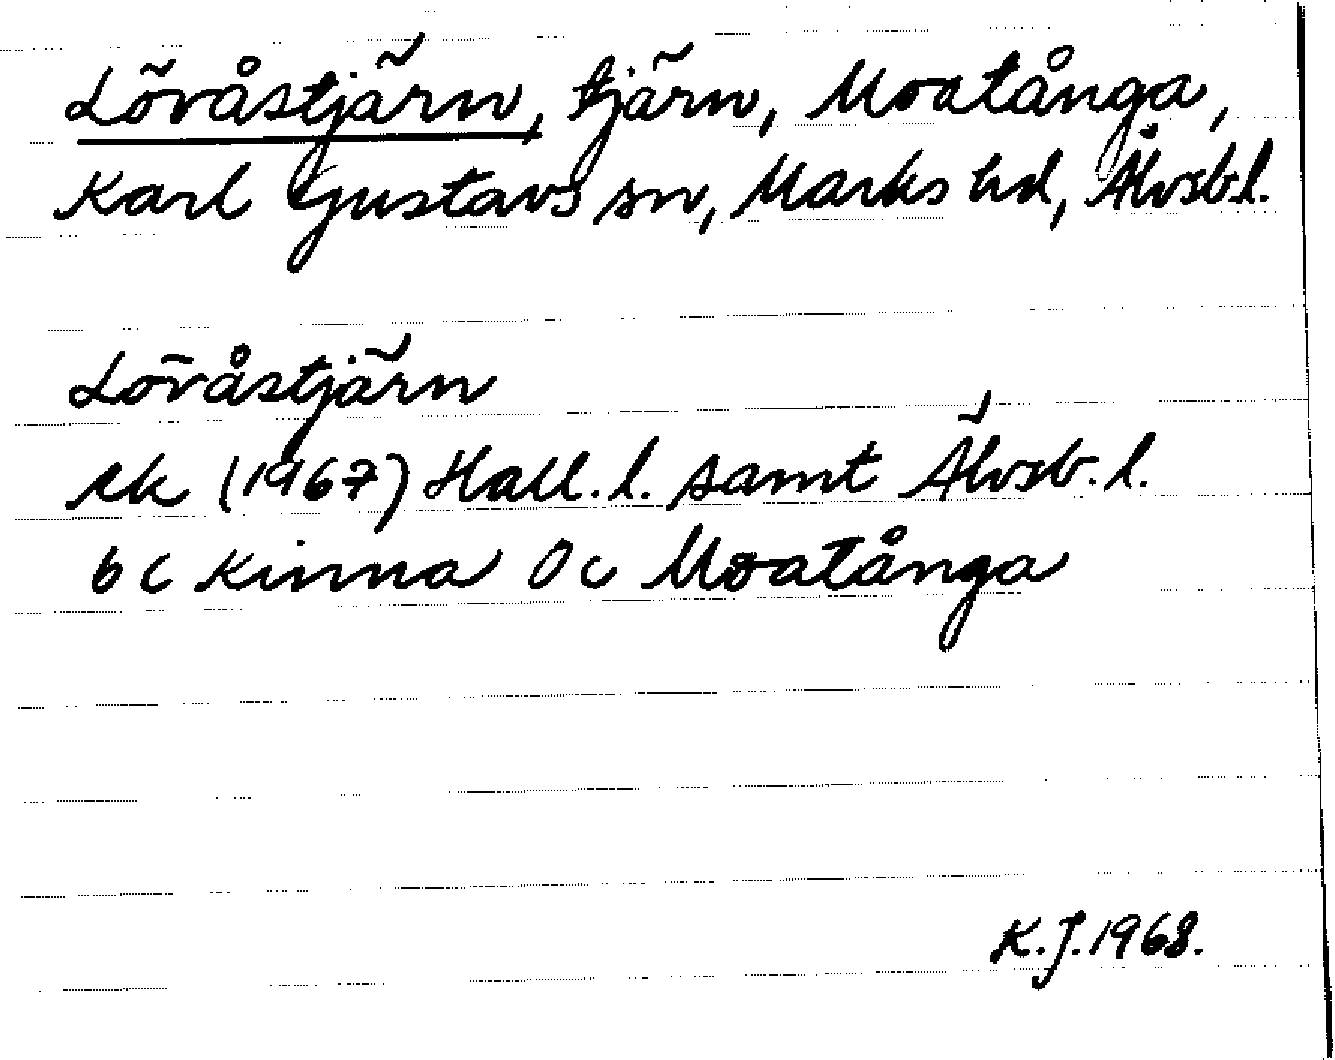 Lövåstjärn, tjärn, Moatånga,
Karl Gustavs sn, Marks hd, Älvsb.l.
Lövåstjärn
ek (1967) Hall. l. samt Älvsb. l.
6 c Kinna 0 c Moatånga
K.J. 1968.